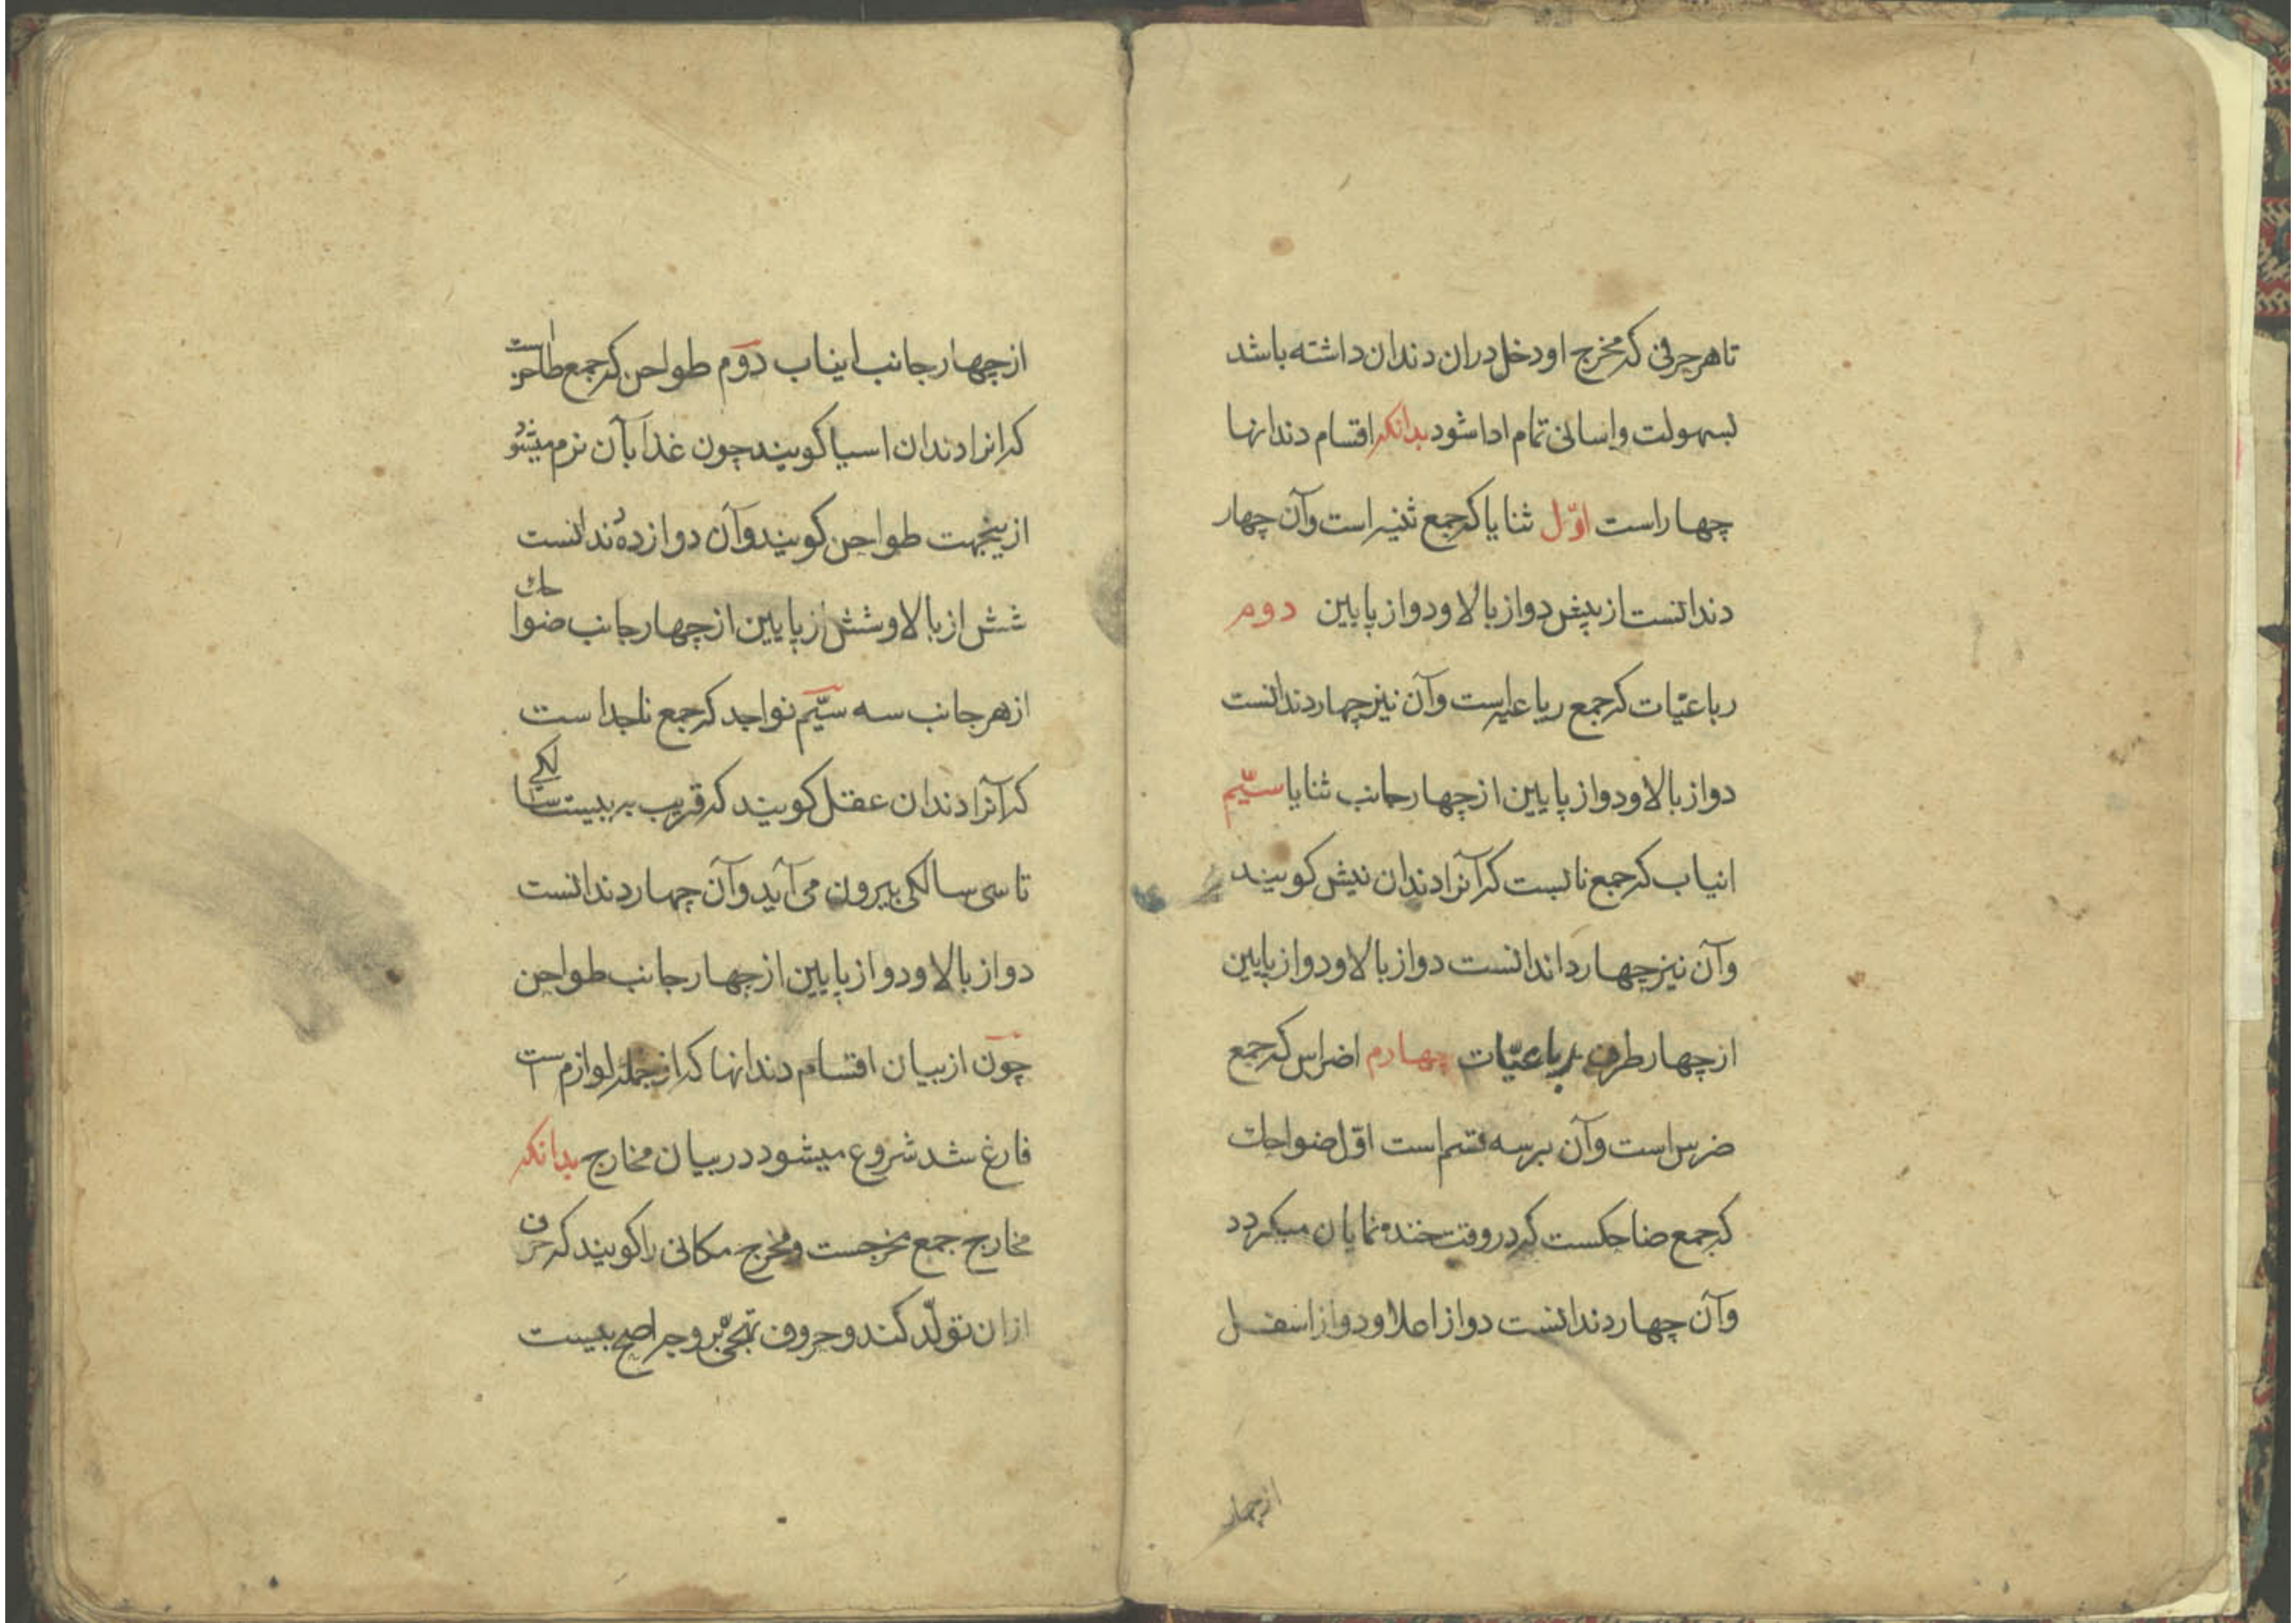 تا هر حرفی که مخرج او دخل دران دندان داشته باشد
بسهولت و اسانی تمام ادا شود بدانکه اقسام دندانها
چهار است اوّل ثنایا که جمع ثنیه است و آن چهار
دندانست از پیش دو از بالا و دو از پایین دوم
رباعیّات که جمع رباعیه است و آن نیز چهار دندانست
دو از بالا و دو از پایین از چهار جانب ثنایا سیّم
انیاب که جمع نابست که آنرا دندان نیش کویند
و آن نیز چهار داندانست دو از بالا و دو از پایین
از چهار طرف رباعیّات چهارم اضراس که جمع
ضرس است و آن بر سه قسم است اوّل ضواحك
که جمع ضاحکست که در وقت خنده نمایان میکردد
و آن چهار دندانست دو از اعلا و دو از اسفل
از چهار
از چهار جانب اینیاب دوّم طواحن که جمع طاحن است
که انرا دندان اسیا کویند چون غذا بآن نرم میشود
ازینجهت طواحن کویند و آن دوازده دندانست
شش از بالا و شش از پایین از چهار جانب ضواحك
از هر جانب سه سیّم نواجد که جمع ناجد است
که آنرا دندان عقل کویند که قریب به بیست سالکی
تا سی سالکی بیرون می آید و آن چهار دندانست
دو از بالا و دو از پایین از چهار جانب طواحن
چون از بیان اقسام دندانها که از جمله لوازم است
فارغ شد شروع میشود در بیان مخارج بدانکه
مخارج جمع مخرجست و مخرج مکانی را کویند که حرف
ازان تولّد کند و حروف تهجّی بر وجه اصح بیست